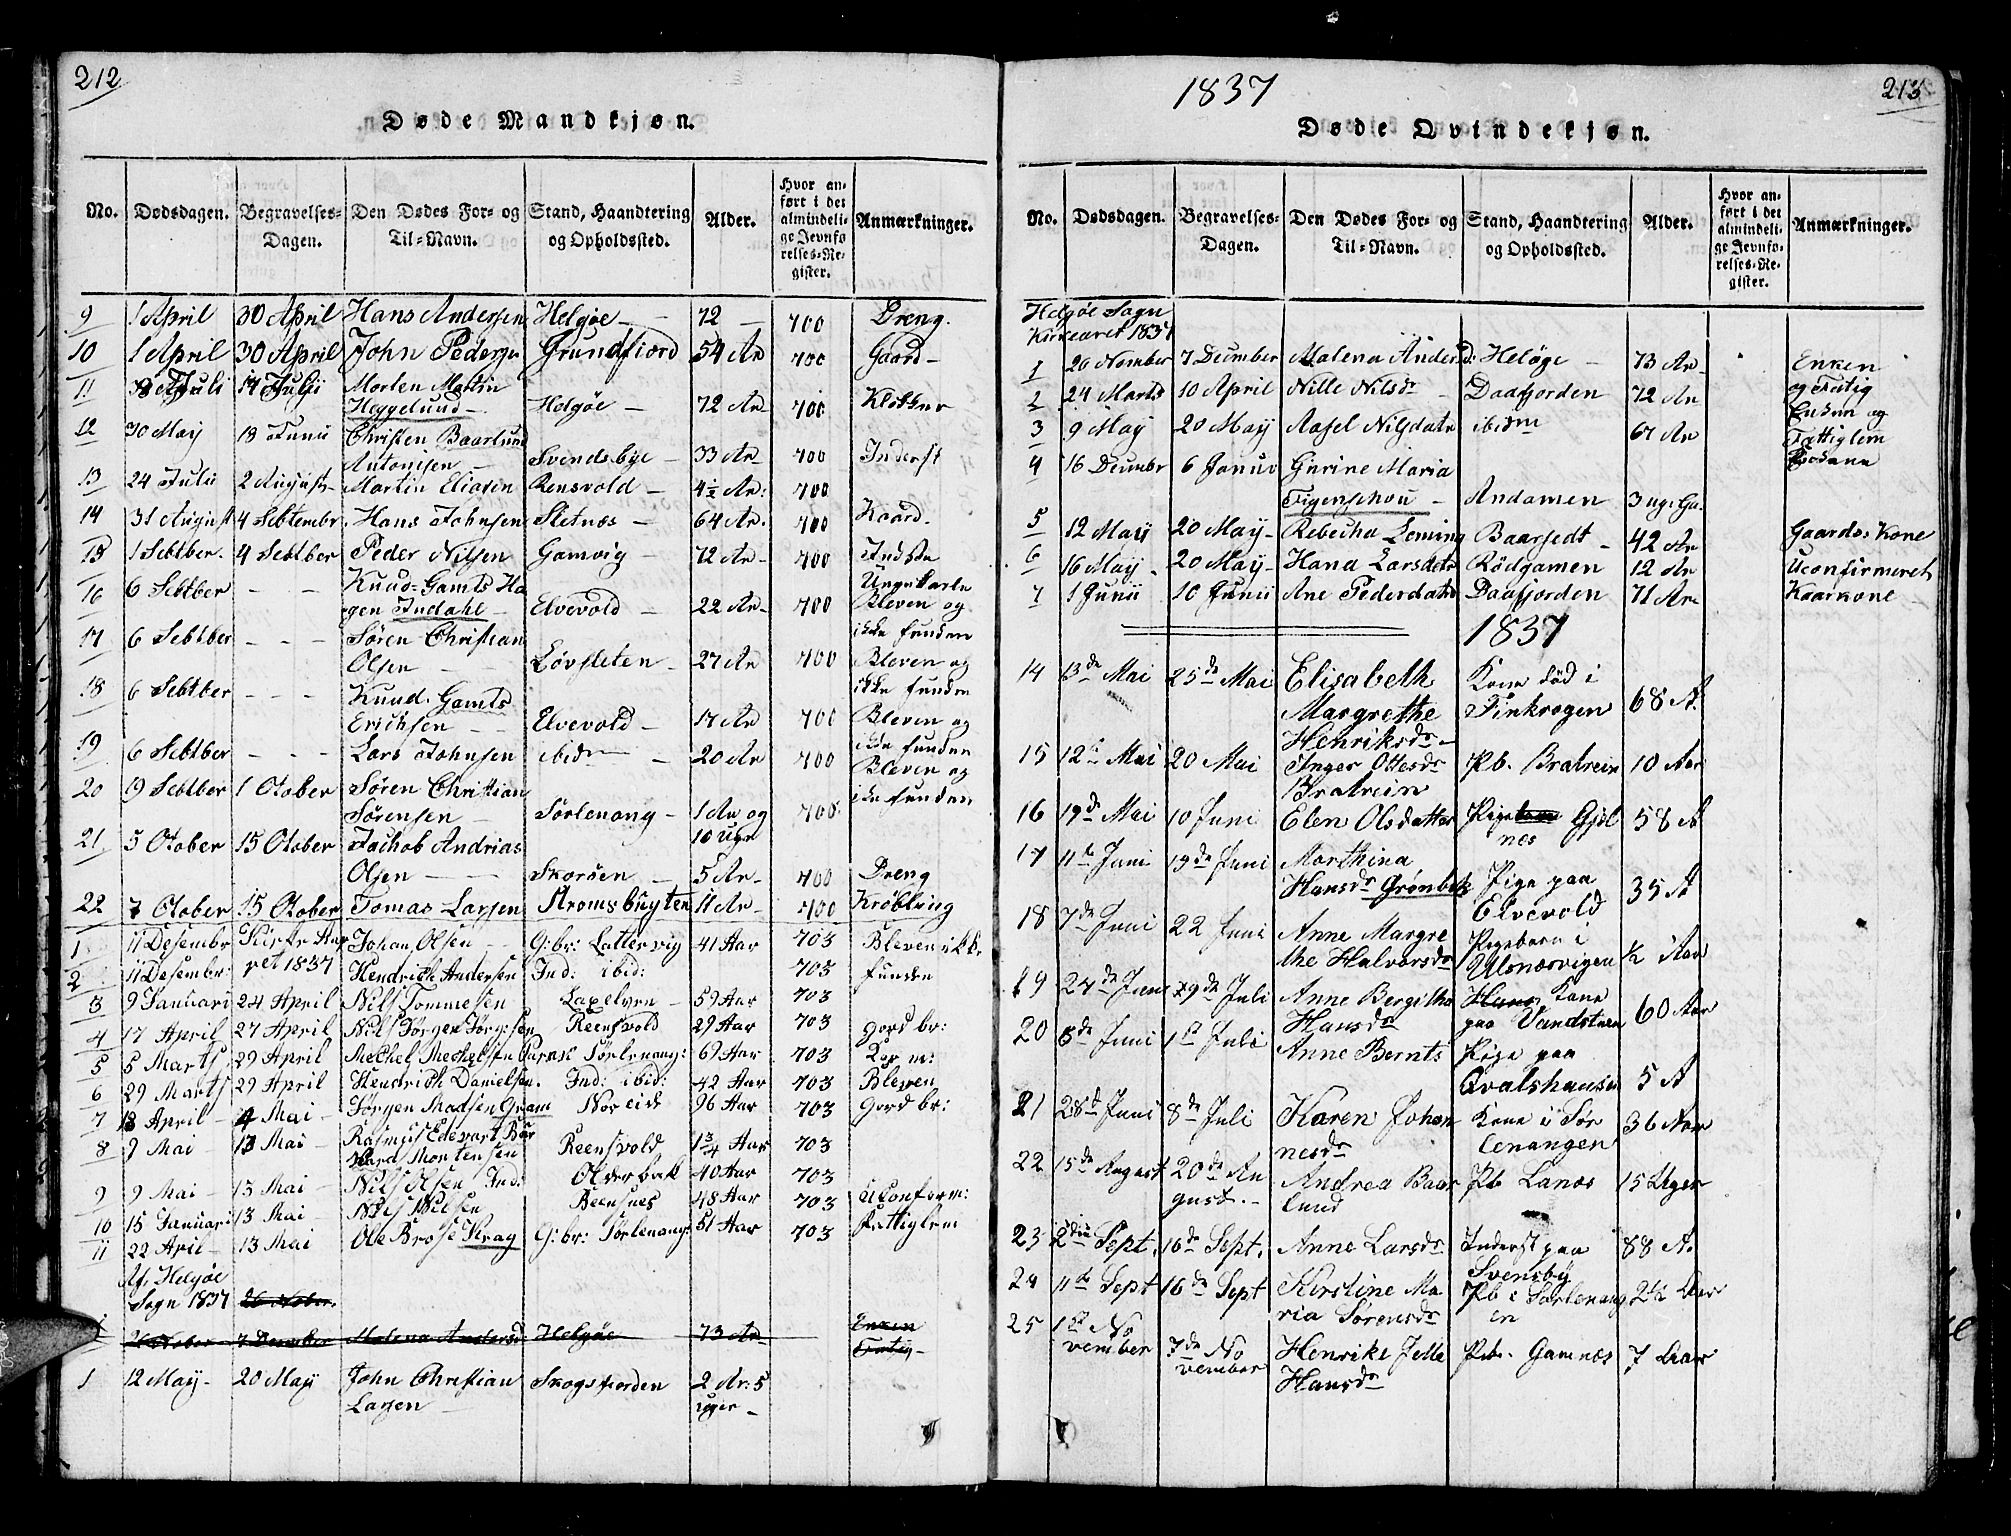 212
Døde Mandkjøn.
No. Dødsdagen. Begravelses-Dagen. Den Dødes For- og Til-Navn. Stand, Haandtering og Opholdssted. Alder. Hvor anført i det almindelige Jevnførelses-Register. Anmærkninger.
9 1 April 30 April Hans Andersen Helgøe - 72 - 700 Dreng.
10 1 April 30 April John Pedersen Grundfiord 54 Ar 700 Gaard -
11 Juli 17 Julij Morten Martin
Heggelund - Helgøe - 72 Ar 700 Klokker
12 30 May 18 Junii Christen Baarlund
Antonisen - Svendsbye - 33 Ar 700 Inderst
13 24 Julii 2 August - Martin Eliasen Rensvold - 4½ Ar: 700
14 31 August 4 Septembr Hans Johnsen Sletnæs - 64 Ar. 700 Kaard.
15 1 Sebtber. 4 Sebtber Peder Nilsen Gamvig - 72 Ar - 700
16 6 Sebtber - - Knud Gamts Ha
gen Indahl - Elvevold - 22 Ar - 700 Bleven og
ikke funden
17 6 Sebtber - - - Søren Christian
Olsen - - Løvsleten - 27 Ar 700 Bleven og
ikke funden
18 6 Sebtber - - - Knud Gamts
Erichsen - - Elvevold - 17 Ar 700 Bleven og
ikke funden
19 6 Sebtber - - - Lars Johnsen ibidm - 20 Ar 700 Bleven og
ikke funden
20 19 Sebtber 1 Otober Søren Christian
Sørensen - - Sørlenang - 1 Ar og 700
10 ugr
21. 5 Otober 15 Otober Jachob Andrias
Olsen - - Skorøen - 5 Ar - 700 Dreng
22 7 Otober 15 Otober Tomas Larsen Stromsbugten 11 Ar - 700 Krøbling
1. 11 Desembr Kirke Aar Johan Olsen - - G: br: Lattervig 41 Aar 703 Bleven ikke
2. 11 Desembr: ret 1837 Hendrich Andersen Ind: ibid: 703 funden
3 9 Januari 24 April Nils Tommesen Laxelven - 59 Aar 703
4 17 April 27 April Nils Jørgen Jørg:sen Reensvold 29 Aar 703 gord br:
5 5 Marts 29 April Mechel Mechelsen Sørlenang: 69 Aar 703
6 29 Marts 29 April Hendrich Danielsen. Ind: ibid: 42 Aar 703 Bleven
7 18 April - 4 Mai - Jørgen Madsen Gram Noreide 96 Aar 703 Gord br:
8 7 Mai - 13 Mai - Rasmus Edevart Bør
Mortensen Reensvold 1¾ Aar 703
9 9 Mai - 13 Mai - Nils Olsen Ind: Olderbak 40 Aar 703
10 15 Januari 13 Mai Nils Nilsen Reensnes 48 Aar 703 Uconform:
11 22 April - 13 Mai Ole Brose Krag G: br: Sørlenang: 51 Aar 703 Fattiglem
Af Helgøe
Sogn 1837 26 Nober.
26 Nober 7 December Malena Andersd Helgøe 73 Ar Enken
1 12 May - 20 Maij John Christian Skogsfiorden 2 Ar: 5
Larsen - uger -
1837
213
Døde Qvindekjøn.
No. Dødsdagen. Begravelses-Dagen. Den Dødes For- og Til-Navn. Stand, Haandtering og Opholdssted. Alder. Hvor anført i det almindelige Jevnførelses-Register. Anmærkninger.
Helgøe Sogn
Kirkeaaret 1837
1 26 November 7 December Malena Andersd: Heløge - 73 Ar - Enken
2 24 Marts 10 April Nille Nilsdr - Daafjorden 72 Ar og Fatig
3 9 May 20 Maij Aasel Nilsdatr ibidm 67 Ar Enken og
Fattiglem
4 16 Decembr 6 Januv Gurine Maria
Figenschou - Andamen 3 uge Ga.
5 12 Maij 20 Maij - Rebecha Leming Baarsedt - 42 Ar Gaards: Kone
6 16 Maij - 20 Maij - Hana Larsdatr Rödgamen 12 Ar Uconfirmeret
7 1 Junii 10 Junii Ane Pedersdatr Daafjorden 71 Ar Kaarkone -
1837
14 13de Mai 25de Mai Elisabeth Kone død i
Margrethe Finkrogen 68 A.
Henriksdr -
15 12te Mai 20 Mai Inger Ottesdr Pb. Bratrein 10 Aar
Bratrein
16 19de Mai 10 Juni Elen Olsdatter Pige Gjøl 58 A
nes
17 11te Juni 19de Juni Marthina Pige paa
Hansdr Grønbek Elvevold 35 A
18 7de Juni 22 Juni Anne Margre Pigebarn i
the Halvorsdr Ulsnæsvigen ½ Aar
19 24de Juni 29de Juli Anne Bergitha Kone
Hansdr paa Vandstuen 60 Aar
20 6de Juni 1ste Juli Anne Bernts Pige paa
Qvalshausen 5 A
21 28de Juni 8de Juli Karen Johan Kone i Sør 36 Aar
nesdr lenangen
22 15de August 20de Au Andrea Baar Pb Lanæs 15 Uger
gust. - lund
23 2den Sept. 16de Sept. Anne Larsdr Inderst paa 88 A.
Svensby
24 11te Sept 16de Sept Kirstine Ma Pb i Sørlenang 2½ Aar
ria Sørensdr en
25 1ste No
vember 7de No Henrike Jelle Pb. Gamnæs 7 Aar
vember Hansdr